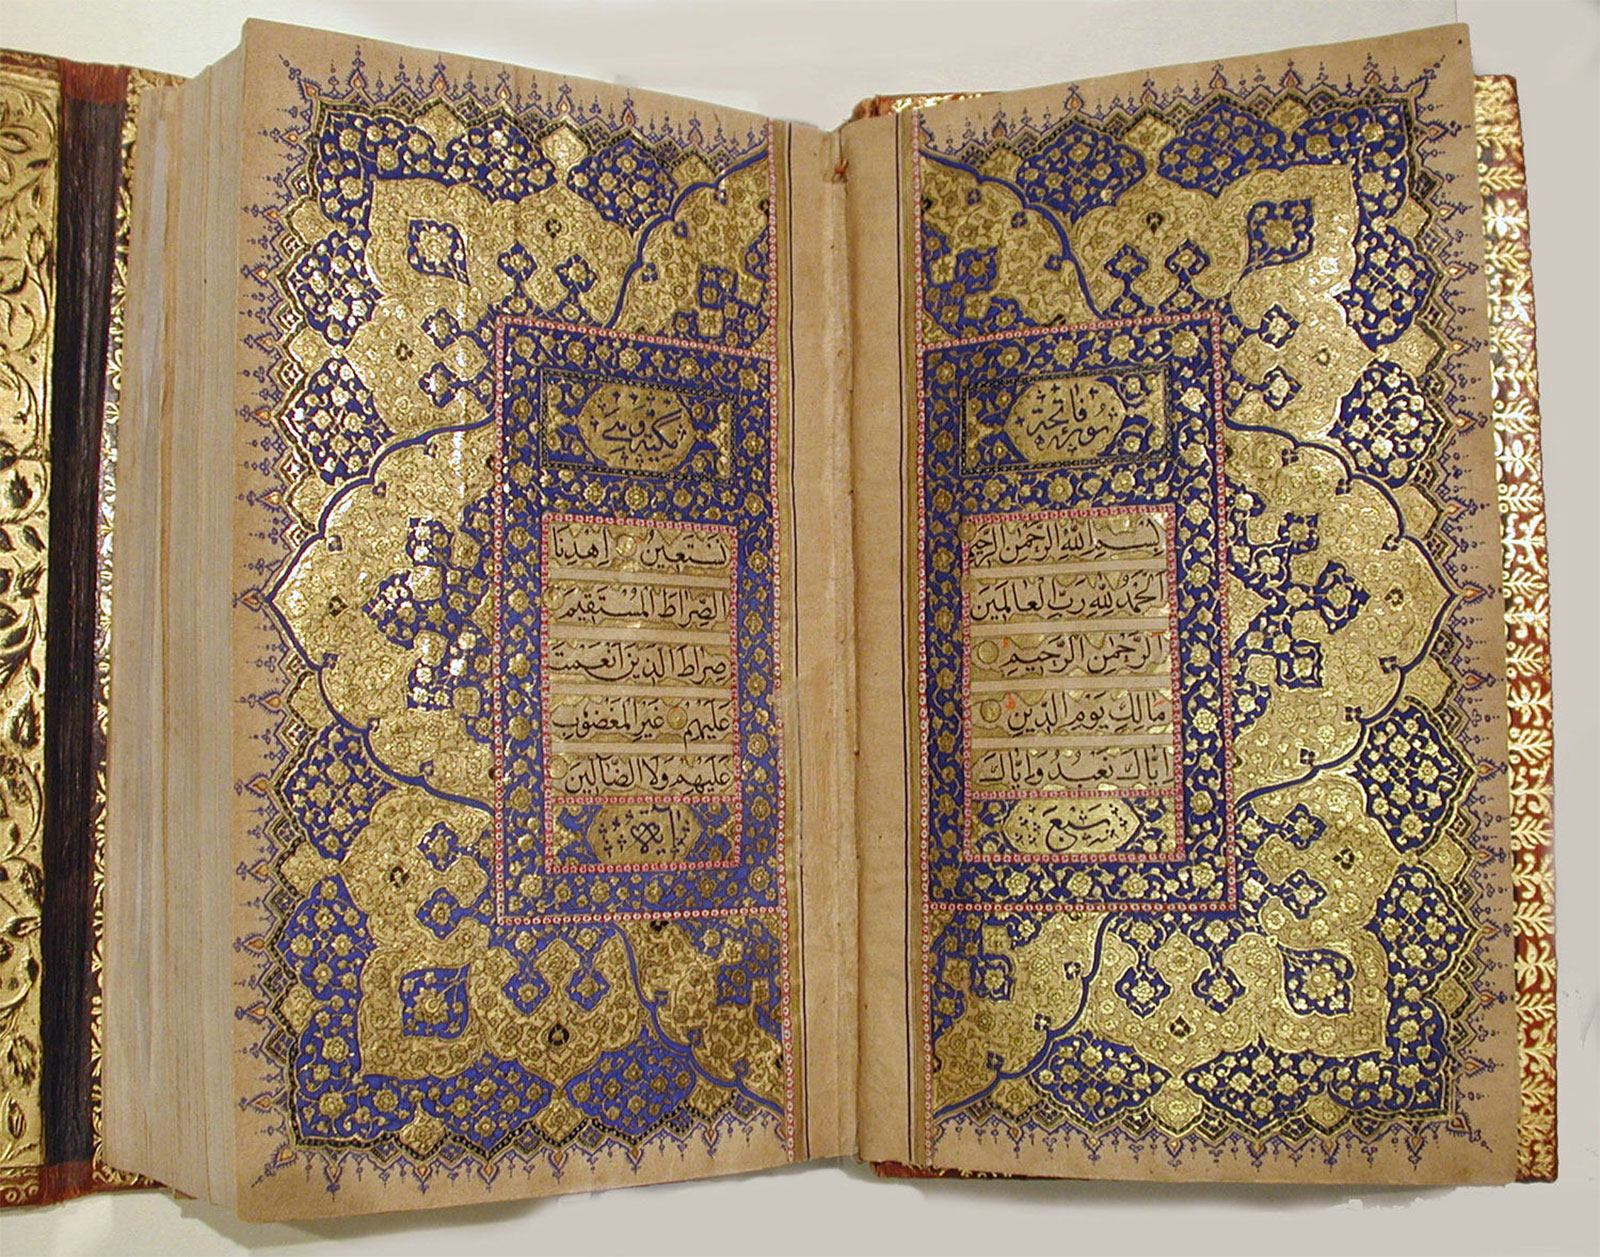 سورة فاتحة
بِسْمِ اللهِ الرَّحْمٰنِ الرَّحِيمِ
اَلْحَمْدُ لِلّٰهِ رَبِّ الْعَالَمِينَ
اَلرَّحْمٰنِ الرَّحِيمِ
مَالِكِ يَوْمِ الدِّينِ
اِيَّاكَ نَعْبُدُ وَاِيَّاكَ
سبع
مكية وهي
نَسْتَعِينُ اِهْدِنَا
الصِّرَاطَ الْمُسْتَقِيمَ
صِرَاطَ الَّذِينَ اَنْعَمْتَ
عَلَيْهِمْ غَيْرِ الْمَغْضُوبِ
عَلَيْهِمْ وَلَا الضَّالِّينَ
آية